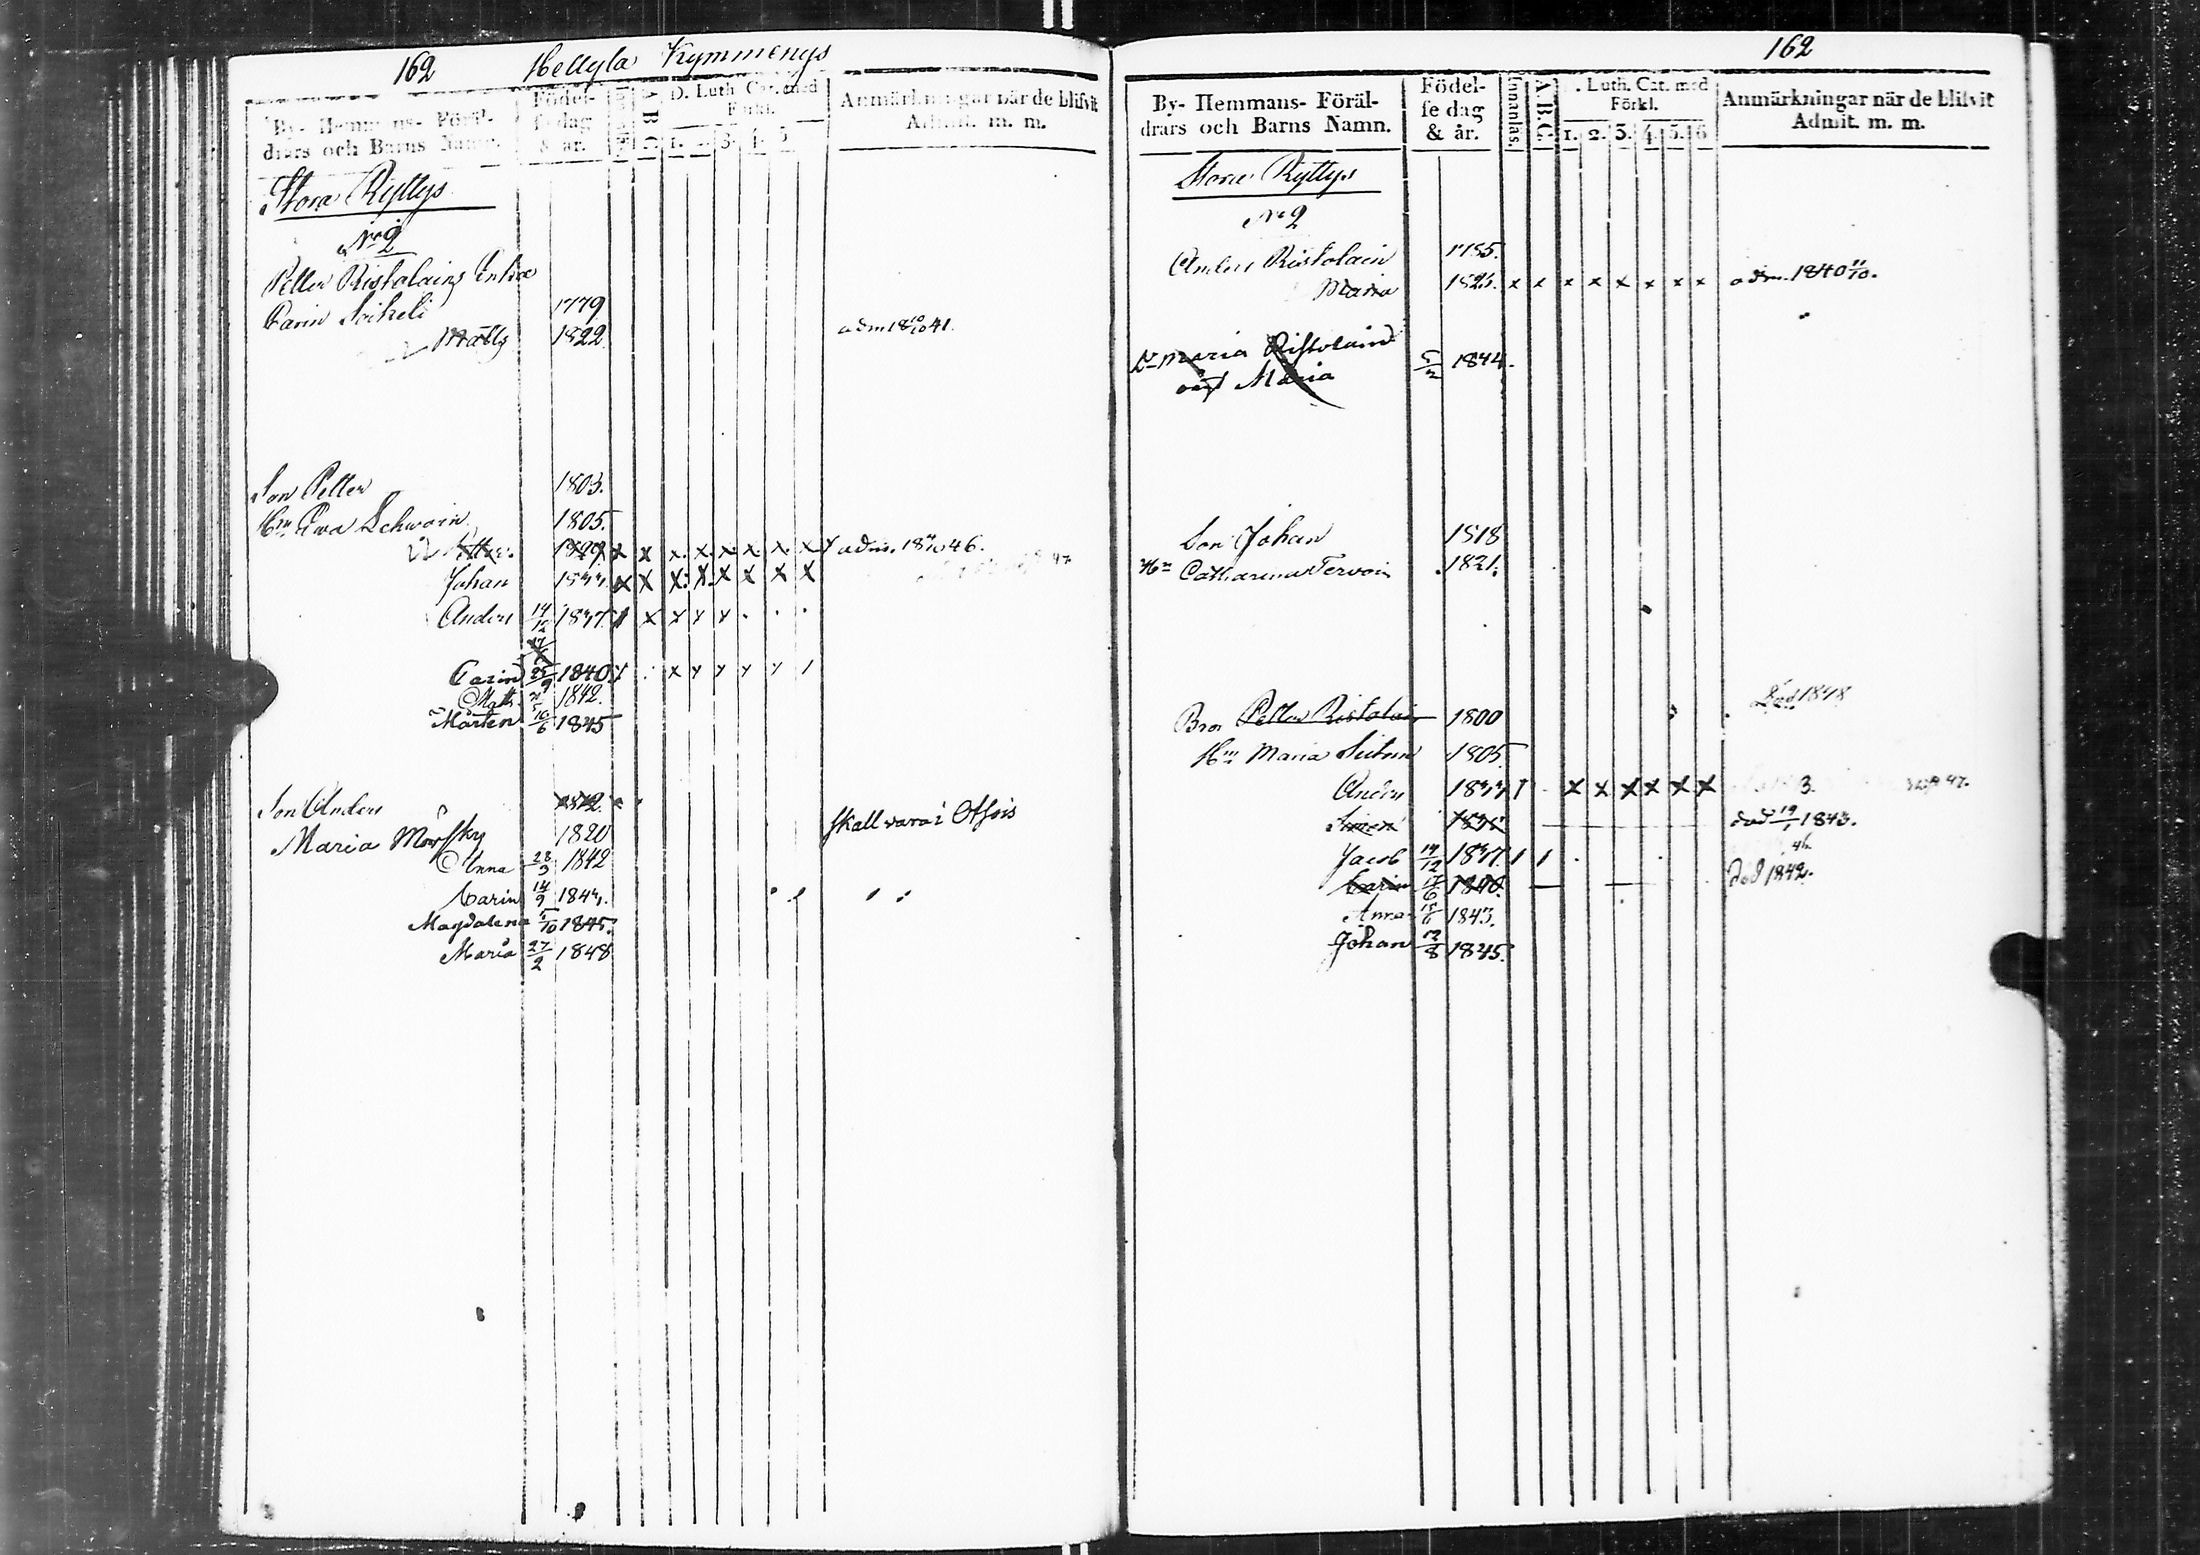 162 Hellyla Kymmenys
By- Hemmans- Föräl-
drars och Barns Namn.
Födel-
se dag
& år.
A.B.C.
D. Luth. Cat. med
Förkl.
1. 3. 4. 5
Anmärkningar när de blifvit
Admit. m. m.
Stora Ryttys
No 2
Petter Ristolains Enka
Carin Seikeli 1779
Matts 1822 adm 18 10/10 41.
Son Petter 1803.
Hu Eva Schwain 1805.
1829. x x x x x x x x adm. 18 46.
Johan x x x x x x x x
Anders 14/12 1837. x x x x
Carin 25/9 1840 x x x x x
Matts 1842.
Mårten 10/6 1845
Son Anders
Maria Morsky 1820 skall vara i
Anna 28/3 1842
Carin 14/9 1844.
Magdalena 5/10 1845.
Maria 27/2 1848
162
By- Hemmans- Föräl-
drars och Barns Namn.
Födel-
se dag
& år.
Innanläs.
A.B.C.
. Luth. Cat. med
Förkl.
1. 2. 3. 4. 5. 6
Anmärkningar när de blifvit
Admit. m. m.
Stora Ryttys
No 2
Anders Ristolain 1785.
Maria x x x x x x x x adm. 1840 11/10.
Dr Maria Ristolain 1844.
Maria
Son Johan 1818
Hu Catharina Tervoin 1821.
Bror Petter Ristolain 1800 Död 1848
Hu Maria 1805.
Anders x x x x x x 3.
Simon död 19/1 1843.
Jacob 14/12 1837.
Carin 17/6 1840. död 1842.
Anna 15/6 1843.
Johan 12/8 1845.